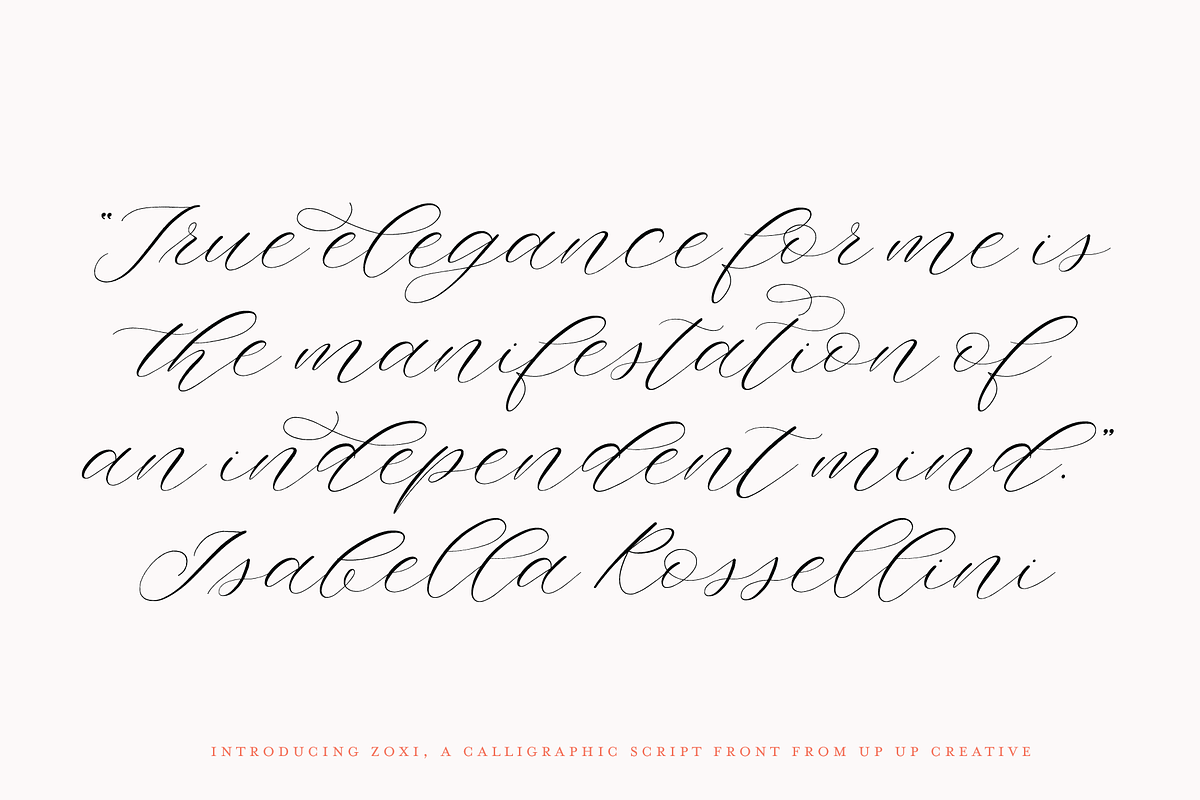 “True elegance for me is
the manifestation of
an independent mind.”
Isabella Rossellini
INTRODUCING ZOXI, A CALLIGRAPHIC SCRIPT FRONT FROM UP UP CREATIVE